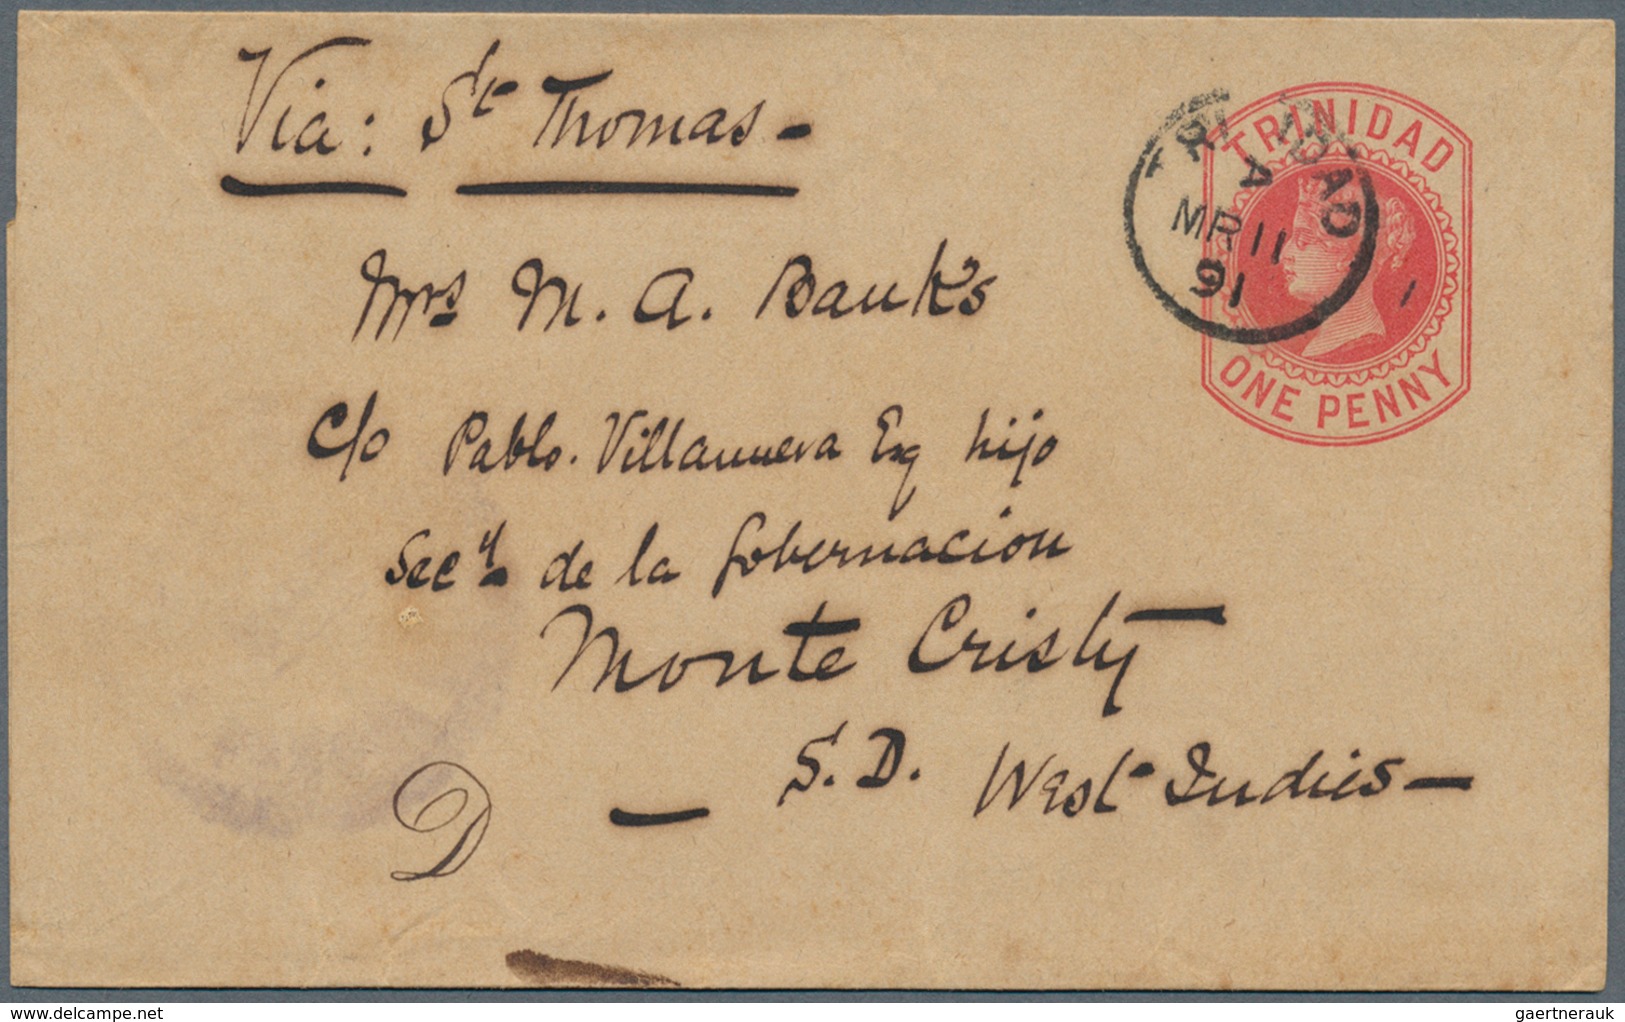 Via: St Thomas -
TRINIDAD
TRINIDAD
A
MR 11
91
1
ONE PENNY
Mrs M. A. Banks
c/o Pablo. Villanueva Esq hijo
Secy de la Gobernacion
Monte Cristy
S. D. West Indies -
D
delcampe.net
gaertnerauk